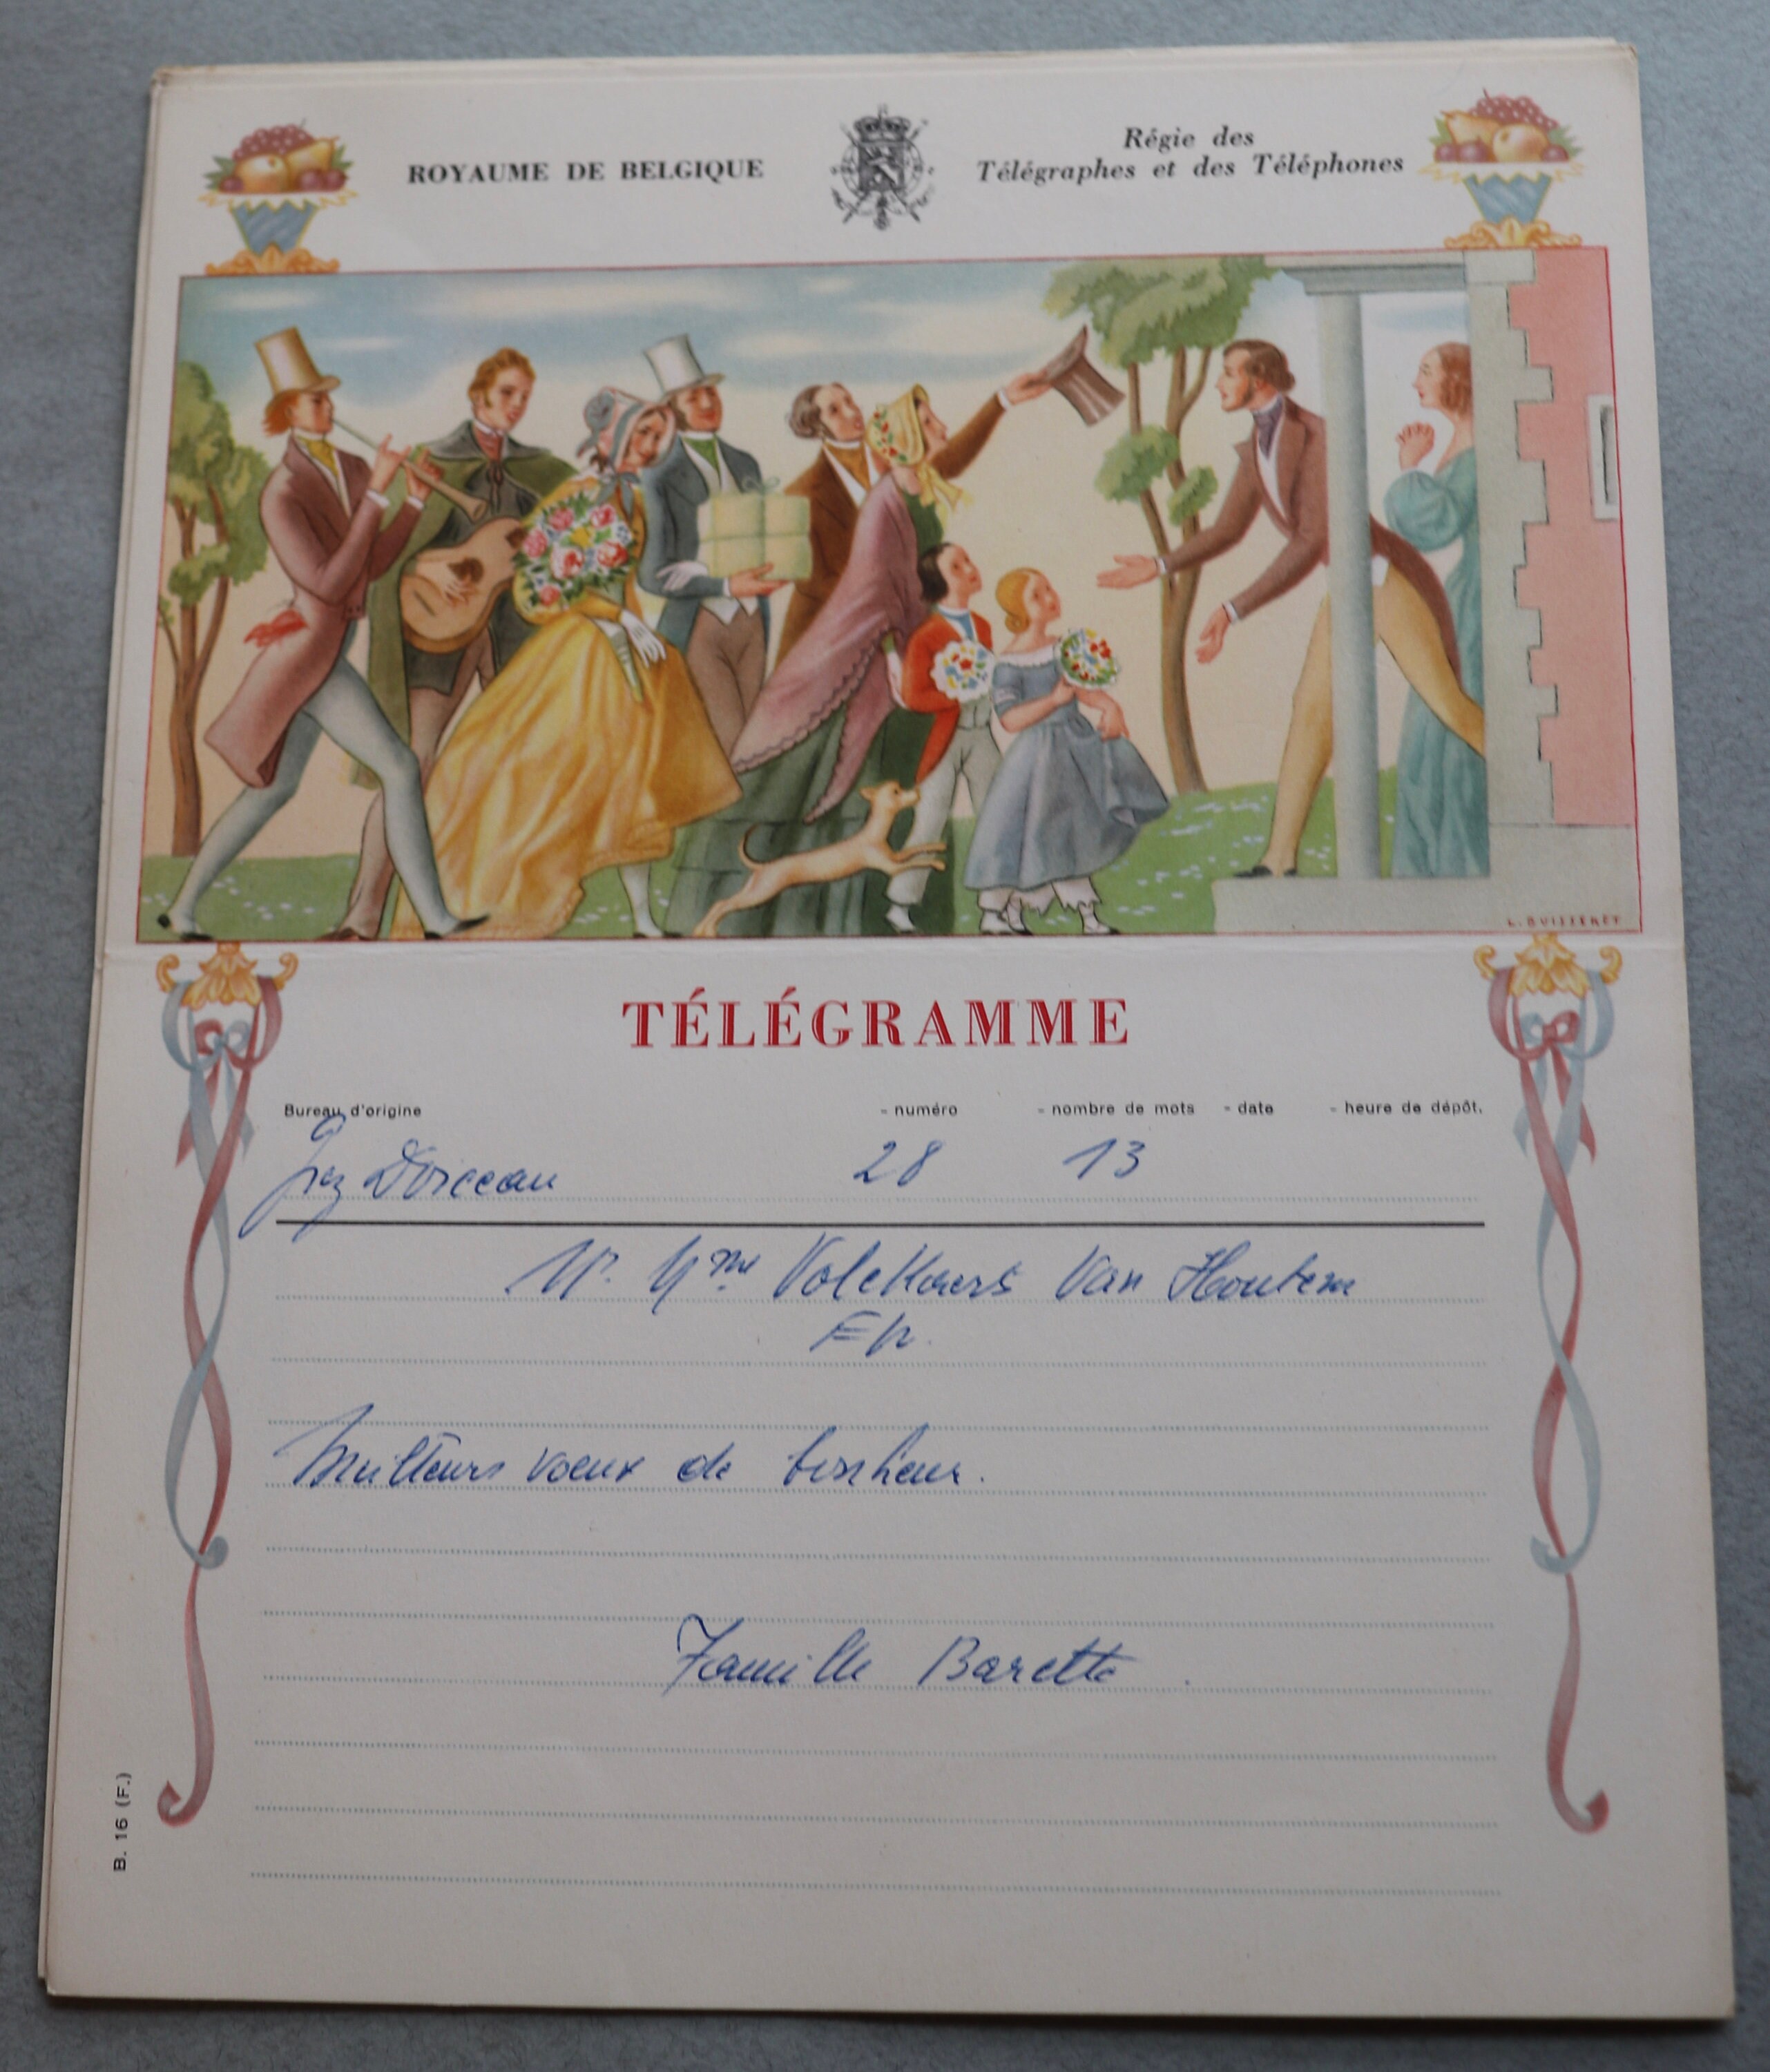 ROYAUME DE BELGIQUE
Régie des
Télégraphes et des Téléphones
L. BUISSERET
TÉLÉGRAMME
Bureau d'origine - numéro - nombre de mots - date - heure de dépôt.
Grez Doiceau 28 13
Mr. Mme Volckaers Van Houtem
Meilleurs voeux de bonheur.
Famille Barette.
B. 16 (F.)